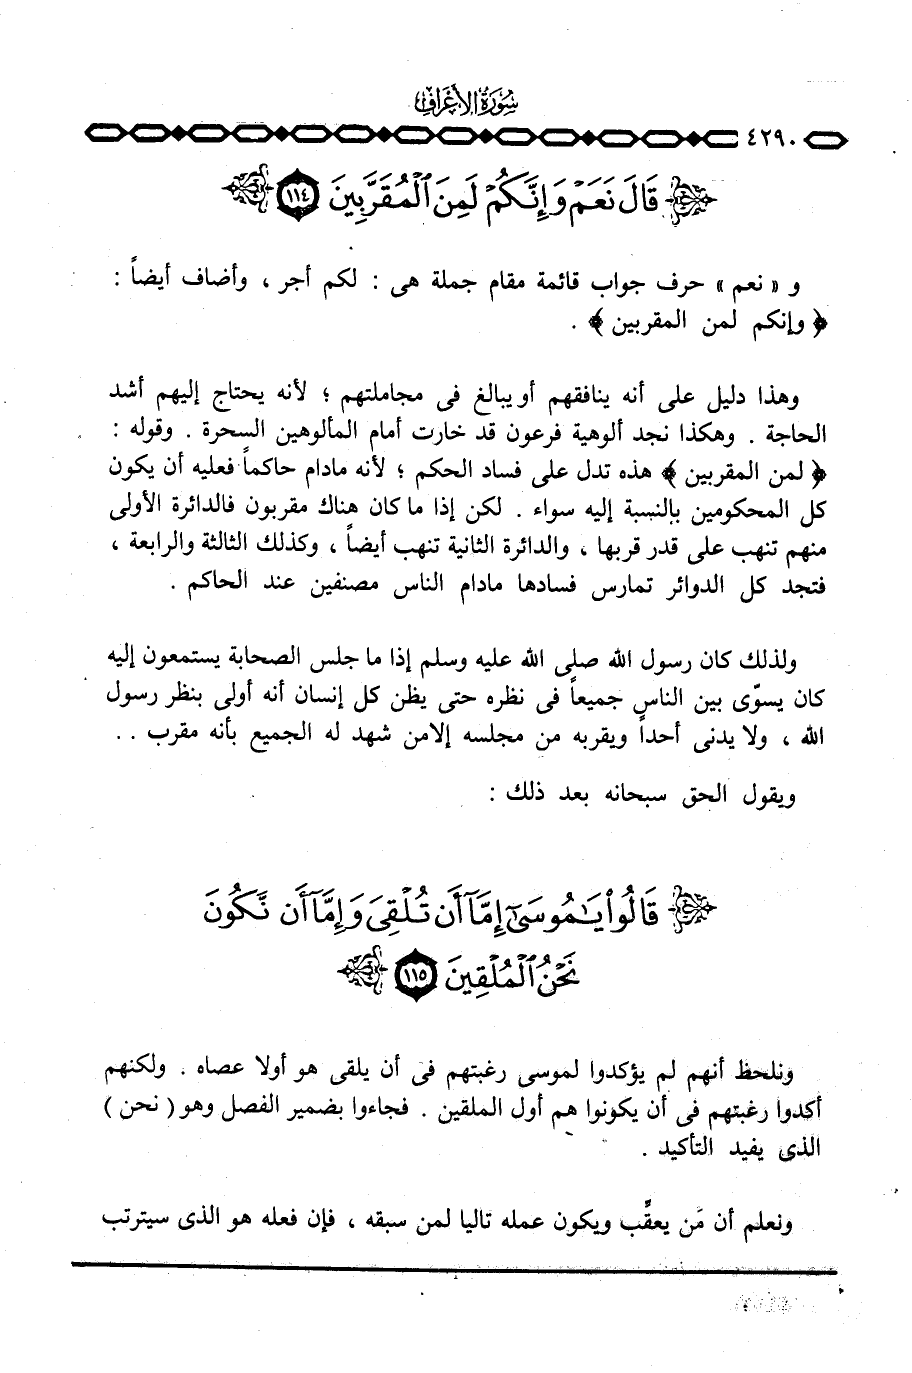 سُورَةُ الأَعْرَافِ
٤٢٩٠
قَالَ نَعَمْ وَإِنَّكُمْ لَمِنَ ٱلْمُقَرَّبِينَ ١١٤
و « نعم » حرف جواب قائمة مقام جملة هى : لكم أجر ، وأضاف أيضاً :
﴿ وإنكم لمن المقربين ﴾ .
وهذا دليل على أنه ينافقهم أو يبالغ فى مجاملتهم ؛ لأنه يحتاج إليهم أشد
الحاجة . وهكذا نجد ألوهية فرعون قد خارت أمام المألوهين السحرة . وقوله :
﴿ لمن المقربين ﴾ هذه تدل على فساد الحكم ؛ لأنه مادام حاكماً فعليه أن يكون
كل المحكومين بالنسبة إليه سواء . لكن إذا ما كان هناك مقربون فالدائرة الأولى
منهم تنهب على قدر قربها ، والدائرة الثانية تنهب أيضاً ، وكذلك الثالثة والرابعة ،
فتجد كل الدوائر تمارس فسادها مادام الناس مصنفين عند الحاكم .
ولذلك كان رسول الله صلى الله عليه وسلم إذا ما جلس الصحابة يستمعون إليه
كان يسوّى بين الناس جميعاً فى نظره حتى يظن كل إنسان أنه أولى بنظر رسول
الله ، ولا يدنى أحداً ويقربه من مجلسه إلا من شهد له الجميع بأنه مقرب . .
ويقول الحق سبحانه بعد ذلك :
قَالُوا۟ يَـٰمُوسَىٰٓ إِمَّآ أَن تُلْقِىَ وَإِمَّآ أَن نَّكُونَ
نَحْنُ ٱلْمُلْقِينَ ١١٥
ونلحظ أنهم لم يؤكدوا لموسى رغبتهم فى أن يلقى هو أولا عصاه . ولكنهم
أكدوا رغبتهم فى أن يكونوا هم أول الملقين . فجاءوا بضمير الفصل وهو ( نحن )
الذى يفيد التأكيد .
ونعلم أن مَن يعقِّب ويكون عمله تاليا لمن سبقه ، فإن فعله هو الذى سيترتب